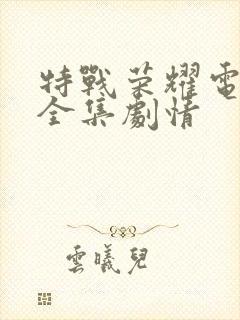 特戰荣耀電
全集劇情
雲曦兒